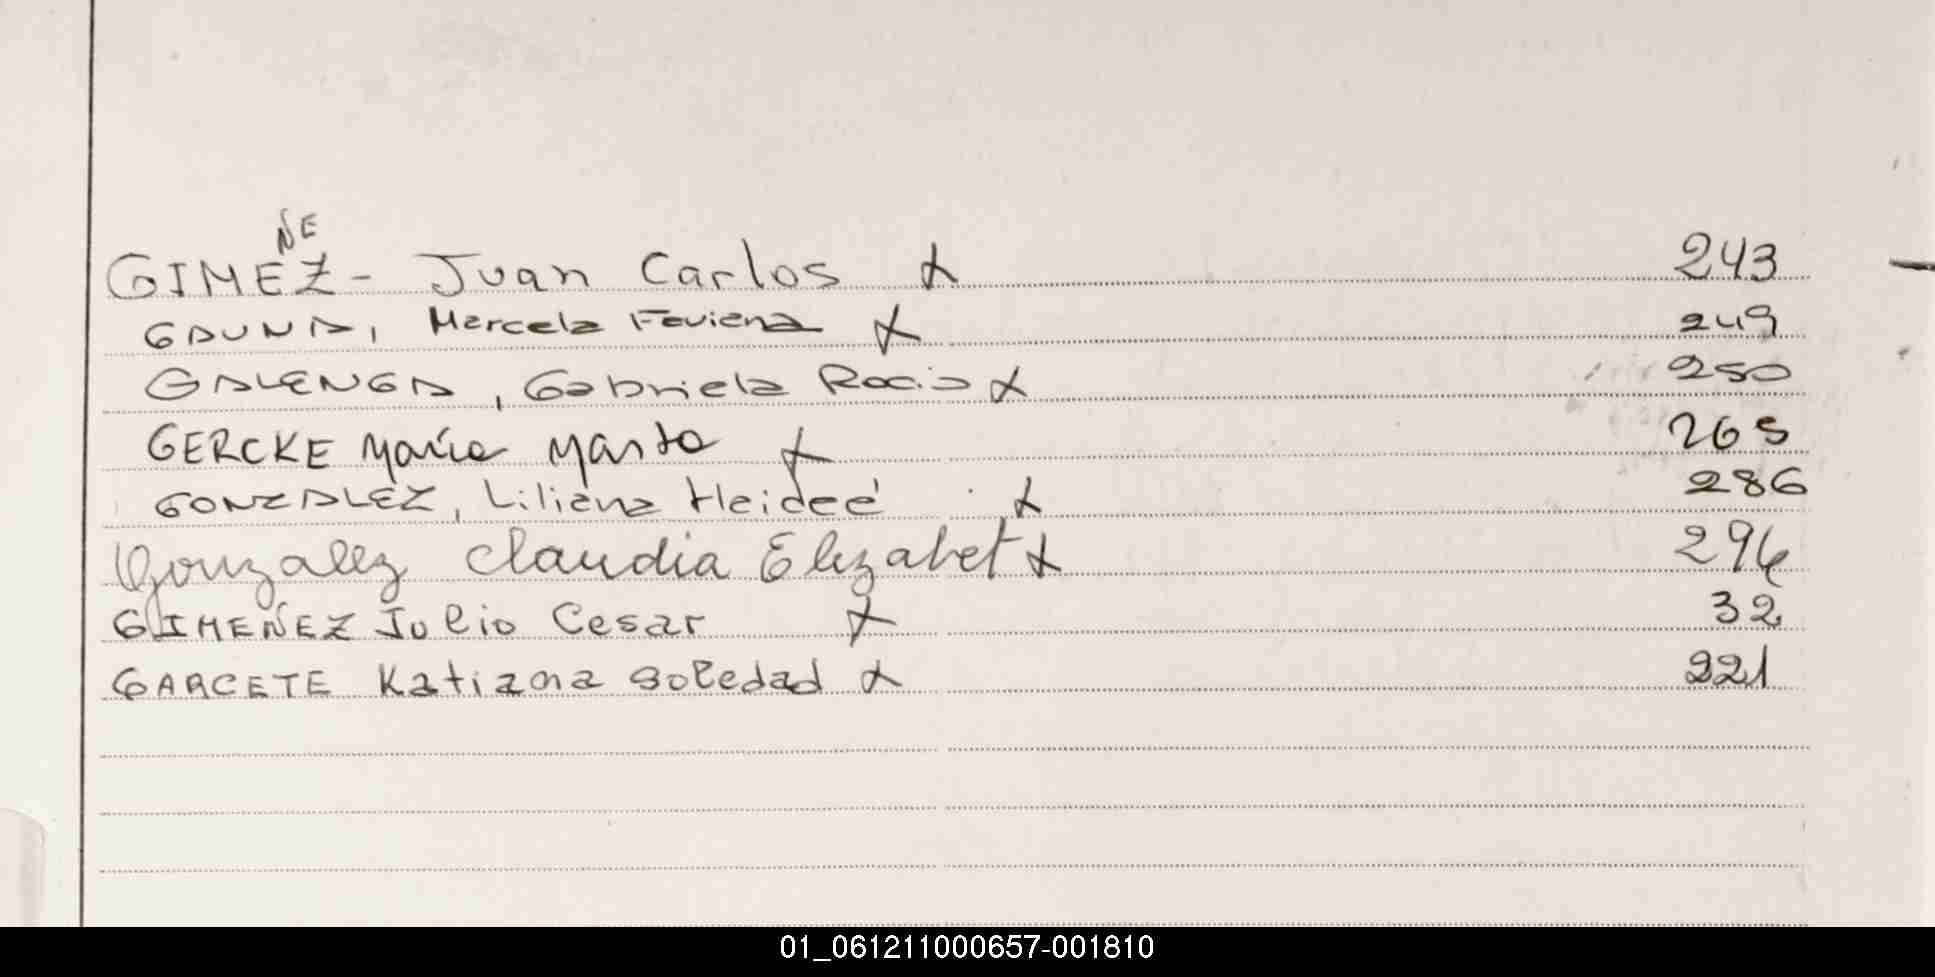 GIMEÑEZ - Juan Carlos x 243
GAUNA, Marcela Faviana x 249
GALENGA, Gabriela Rocio x 250
GERCKE María Marta x 265
GONZALEZ, Liliana Heideé x 286
Gonzalez Claudia Elizabet x 294
GIMEÑEZ Julio Cesar x 32
GARCETE Katiana Soledad x 221
01_061211000657-001810